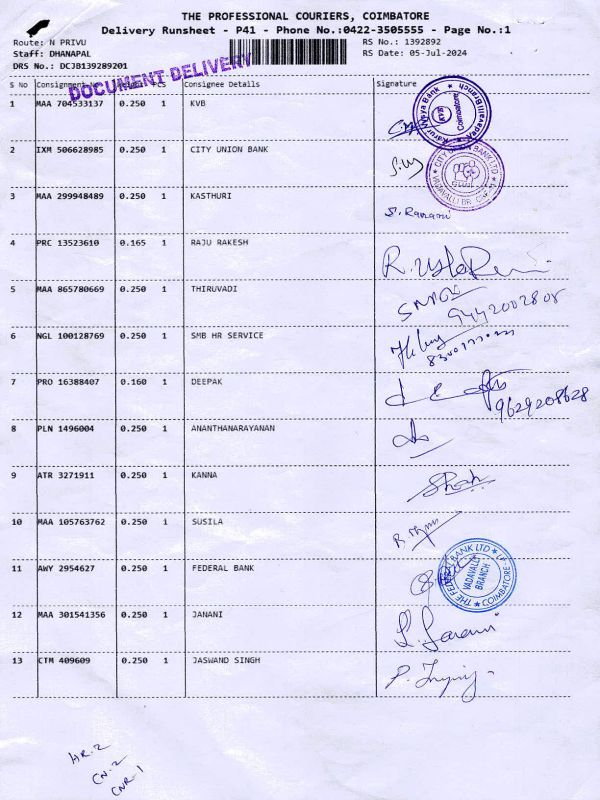 THE PROFESSIONAL COURIERS, COIMBATORE
Delivery Runsheet - P41 - Phone No.:0422-3505555 - Page No.:1
Route: N PRIVU RS No.: 1392892
Staff: DHANAPAL RS Date: 05-Jul-2024
DRS No.: DCJB139289201
DOCUMENT DELIVERY
S No Consignment Consignee Details Signature
1 MAA 704533137 0.250 1 KVB
Karur Vysya Bank Vadavalli Branch KVB Coimbatore
2 IXM 506628985 0.250 1 CITY UNION BANK
CITY UNION BANK LTD VADAVALLI BR.
3 MAA 299948489 0.250 1 KASTHURI
4 PRC 13523610 0.165 1 RAJU RAKESH
5 MAA 865780669 0.250 1 THIRUVADI
9442002808
6 NGL 100128769 0.250 1 SMB HR SERVICE
7 PRO 16388407 0.160 1 DEEPAK
9629208628
8 PLN 1496004 0.250 1 ANANTHANARAYANAN
9 ATR 3271911 0.250 1 KANNA
10 MAA 105763762 0.250 1 SUSILA
11 AWY 2954627 0.250 1 FEDERAL BANK
THE FEDERAL BANK LTD VADAVALLI BRANCH COIMBATORE
12 MAA 301541356 0.250 1 JANANI
13 CTM 409609 0.250 1 JASWAND SINGH
HR-2
CN-2
CNR-1